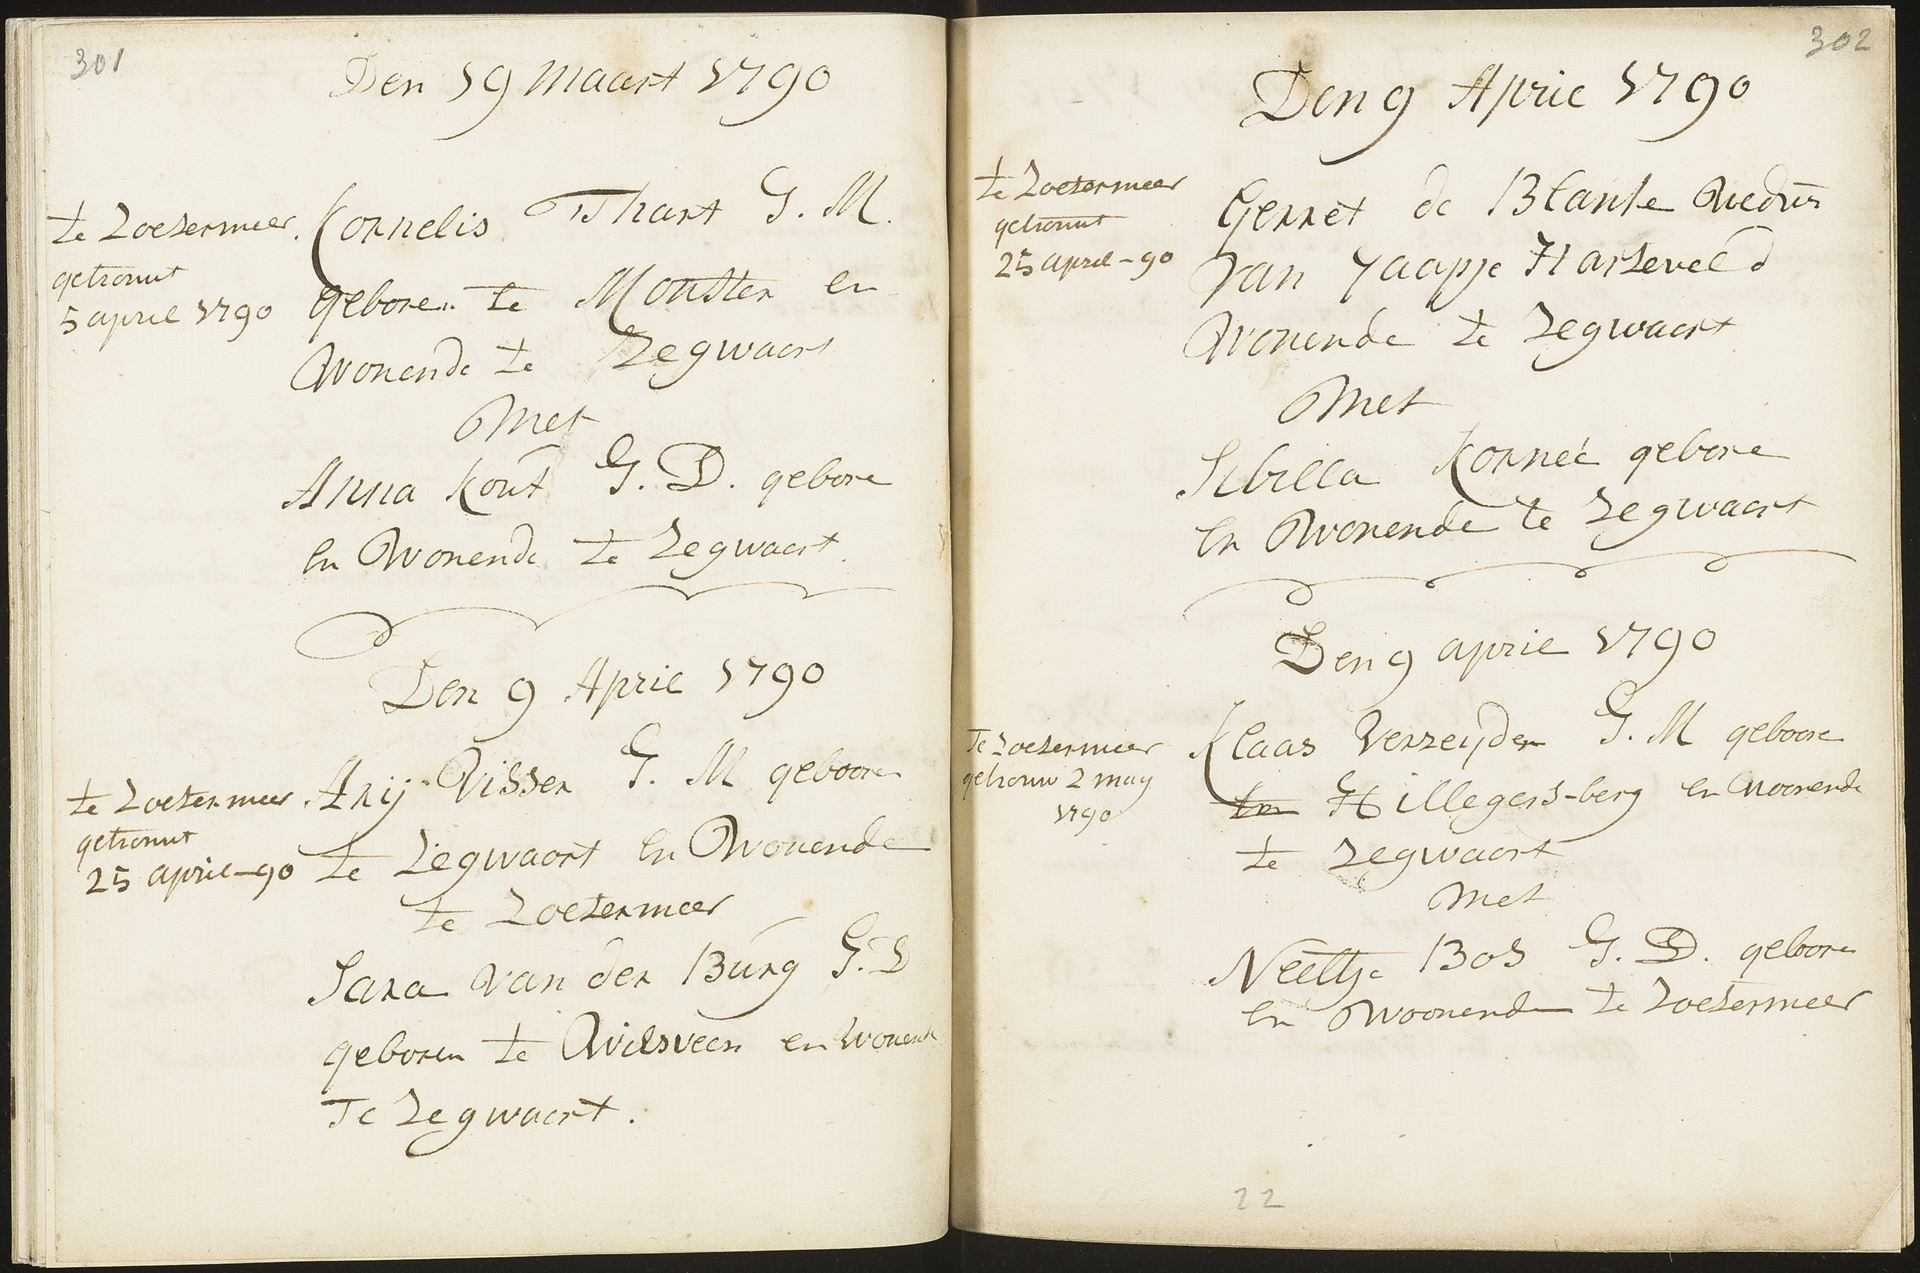 301
Den 19 Maart 1790
te Zoetermeer
getrouwt
5 april 1790
Kornelis T Hart G. M.
gebore te Monster en
Wonende te Zegwaart
Met
Anna Kout G. D. gebore
en Wonende te Zegwaart.
Den 9 April 1790
te Zoetermeer
getrouwt
25 april-90
Arij Visser G. M geboore
te Zegwaart en Wonende
te Zoetermeer
Sara van der Burg G. D
geboren te Wilsveen en Wonende
Te Zegwaart.
302
Den 9 April 1790
te Zoetermeer
getrouwt
25 april-90
Gerret de Blanke Wedur
van Jaapje Harteveld
Wonende te Zegwaart
Met
Sibilla Korneé gebore
en Wonende te Zegwaart
Den 9 april 1790
Te Zoetermeer
getrouw 2 may
1790
Klaas Verzeijden G. M geboore
Hillegers-berg en Woonende
te Zegwaart
Met
Neeltje Bos G. D. gebore
en Woonende te Zoetermeer
22